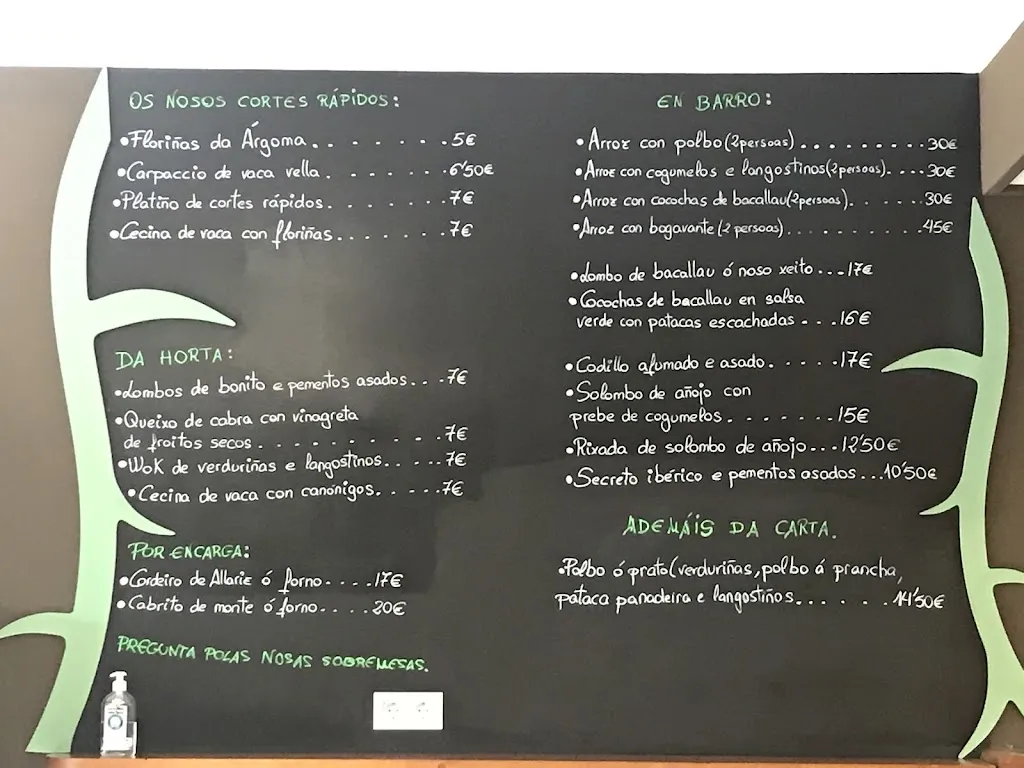 OS NOSOS CORTES RÁPIDOS:
•Floriñas da Árgoma. . . . . . . .5€
•Carpaccio de vaca vella. . . . . . . .6'50€
•Platiño de cortes rápidos. . . . . . .7€
•Cecina de vaca con floriñas. . . . . . .7€
DA HORTA:
•Lombos de bonito e pementos asados. . .7€
•Queixo de cabra con vinagreta
de froitos secos. . . . . . . . . . .7€
•Wok de verduriñas e langostinos. . . . .7€
•Cecina de vaca con canónigos. . . . .7€
POR ENCARGA:
•Cordeiro de Allariz ó forno. . . .17€
•Cabrito de monte ó forno. . . . 20€
PREGUNTA POLAS NOSAS SOBREMESAS.
EN BARRO:
•Arroz con polbo(2persoas). . . . . . . . . .30€
•Arroz con cogumelos e langostinos(2persoas). . . .30€
•Arroz con cocochas de bacallau(2persoas). . . . . .30€
•Arroz con bogavante(2 persoas). . . . . . . . . .45€
•Lombo de bacallau ó noso xeito. . .17€
•Cocochas de bacallau en salsa
verde con patacas escachadas. . . .16€
•Codillo afumado e asado. . . . . .17€
•Solombo de añojo con
prebe de cogumelos. . . . . . . .15€
•Rixada de solombo de añojo. . .12'50€
•Secreto ibérico e pementos asados. . .10'50€
ADEMÁIS DA CARTA.
•Polbo ó prato(verduriñas,polbo á prancha,
pataca panadeira e langostiños. . . . . . .14'50€